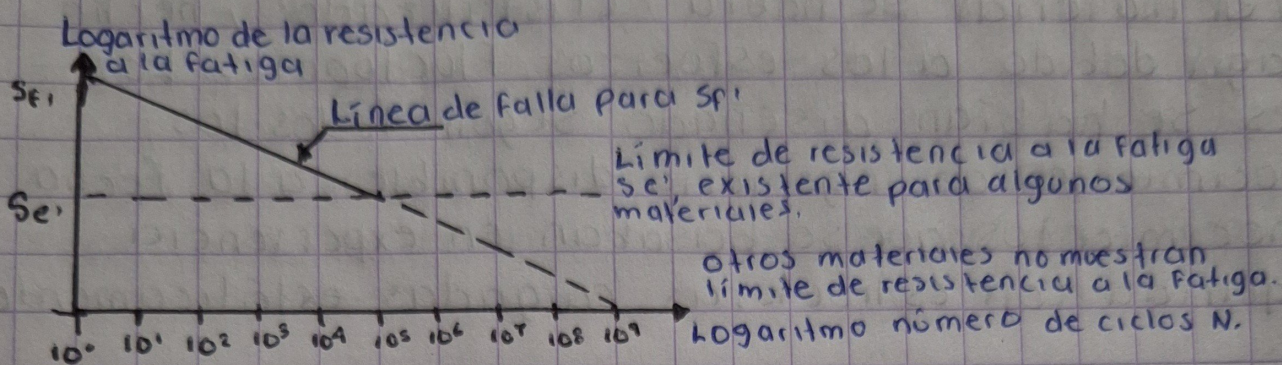 Logaritmo de la resistencia
a la fatiga
Sf'
Línea de falla para Sf'
Límite de resistencia a la fatiga
Se' existente para algunos
materiales.
Se'
otros materiales no muestran
límite de resistencia a la fatiga.
10⁰ 10¹ 10² 10³ 10⁴ 10⁵ 10⁶ 10⁷ 10⁸ 10⁹
Logaritmo número de ciclos N.